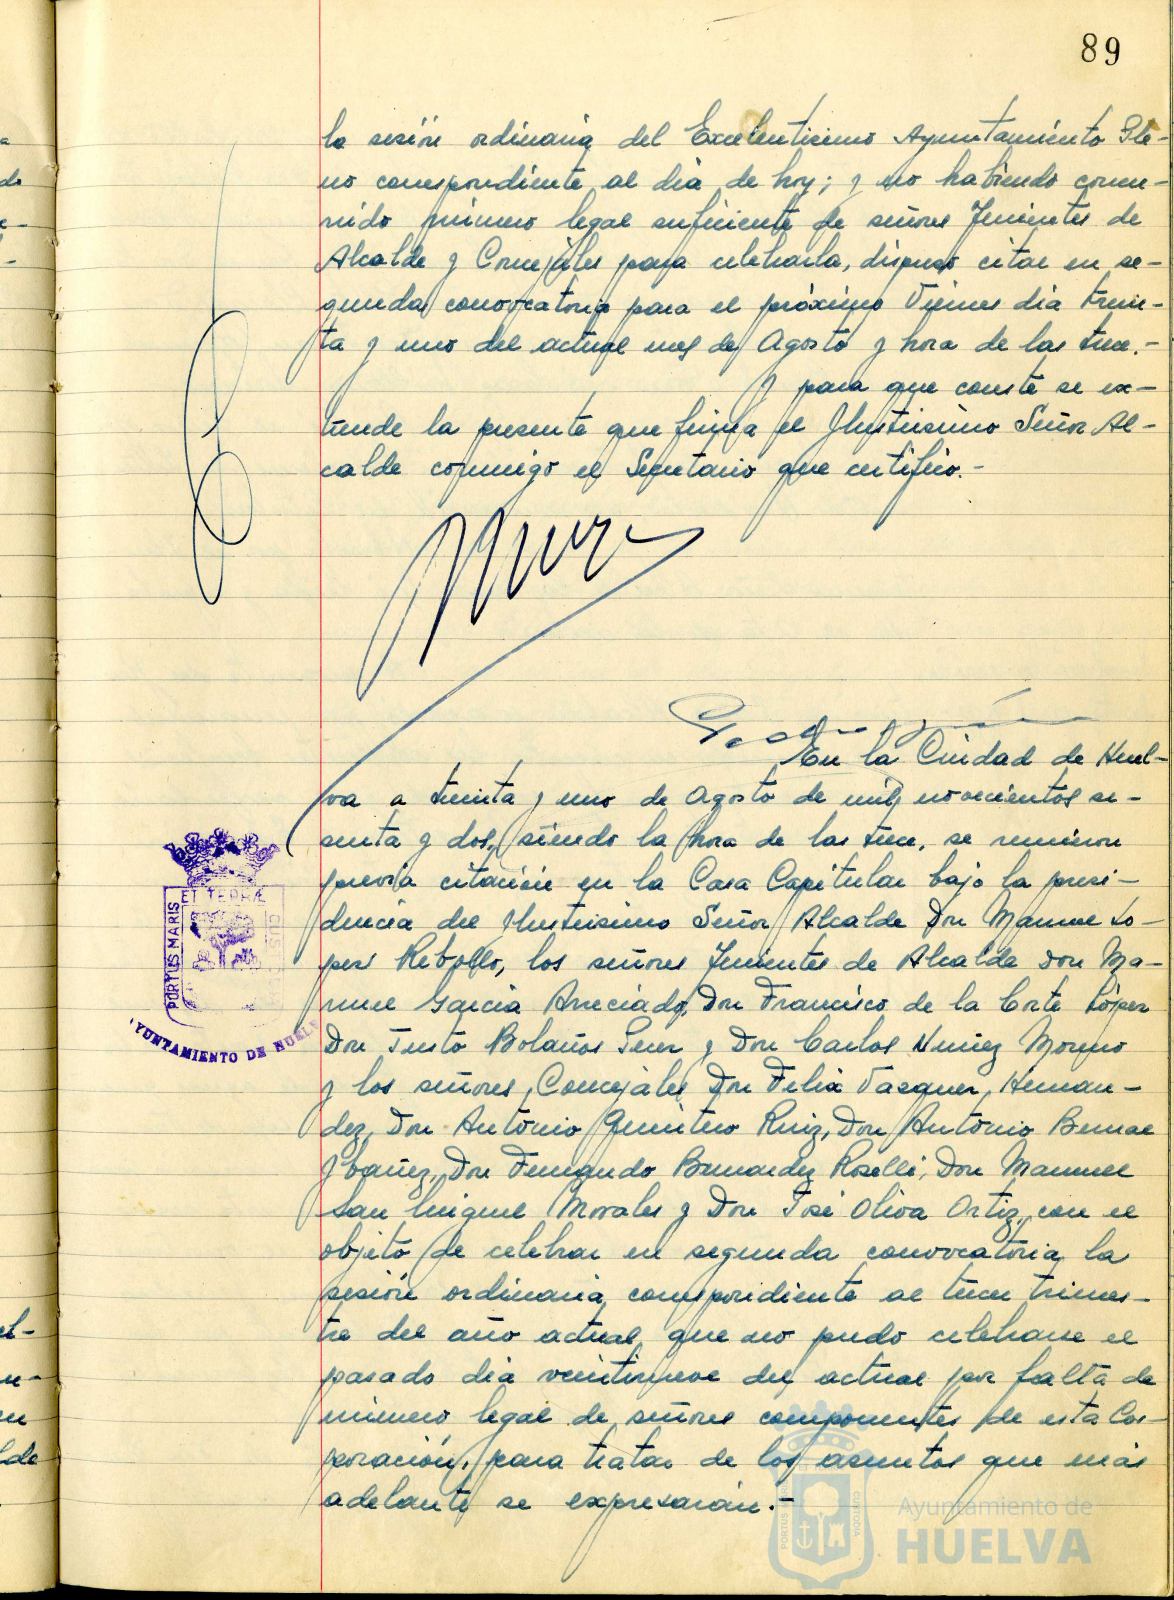 89
la sesión ordinaria del Excelentísimo Ayuntamiento Ple-
no correspondiente al día de hoy; y no habiendo concu-
rrido número legal suficiente de señores Tenientes de
Alcalde y Concejales para celebrarla, dispuso citar en se-
gunda convocatoria para el próximo Viernes día trein-
ta y uno del actual mes de Agosto y hora de las trece.-
Y para que conste se ex-
tiende la presente que firma el Ilustrísimo Señor Al-
calde conmigo el Secretario que certifico.-
En la Ciudad de Huel-
va a treinta y uno de Agosto de mil novecientos se-
senta y dos, siendo la hora de las trece, se reunieron
previa citación en la Casa Capitular bajo la presi-
dencia del Ilustrísimo Señor Alcalde Don Manuel Ló-
pez Rebollo, los señores Tenientes de Alcalde Don Ma-
nuel García Arreciado, Don Francisco de la Corte López
Don Justo Bolaños Don Carlos Núñez Moreno
y los señores Concejales Don Félix Vázquez Hernán-
dez, Don Antonio Quintero Ruiz, Don Antonio Bernal
Ybáñez, Don Fernando Bernardez Roselli, Don Manuel
San Miguel Morales y Don José Oliva Ortiz, con el
objeto de celebrar en segunda convocatoria la
sesión ordinaria correspondiente al tercer trimes-
tre del año actual, que no pudo celebrarse el
pasado día veintinueve del actual por falta de
número legal de señores componentes de esta Cor-
poración, para tratar de los asuntos que más
adelante se expresarán.-
PORTUS MARIS
ET TERRÆ
CUSTODIA
AYUNTAMIENTO DE HUELVA
Ayuntamiento de
HUELVA